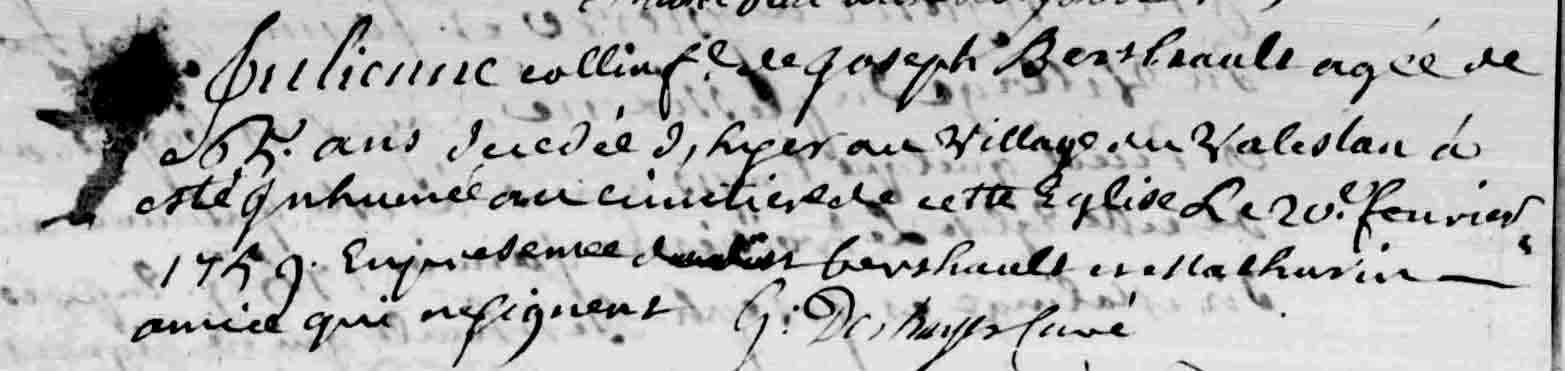 Julienne collin f.e de Joseph Bershault agée de
65. ans decedée d'hyer au Village du Valeslan a
esté Inhumée au cimetiere de cette Eglise Le 20.e feuvrier
1759. En presence bershault et Mathurin
qui ne signent G: Curé